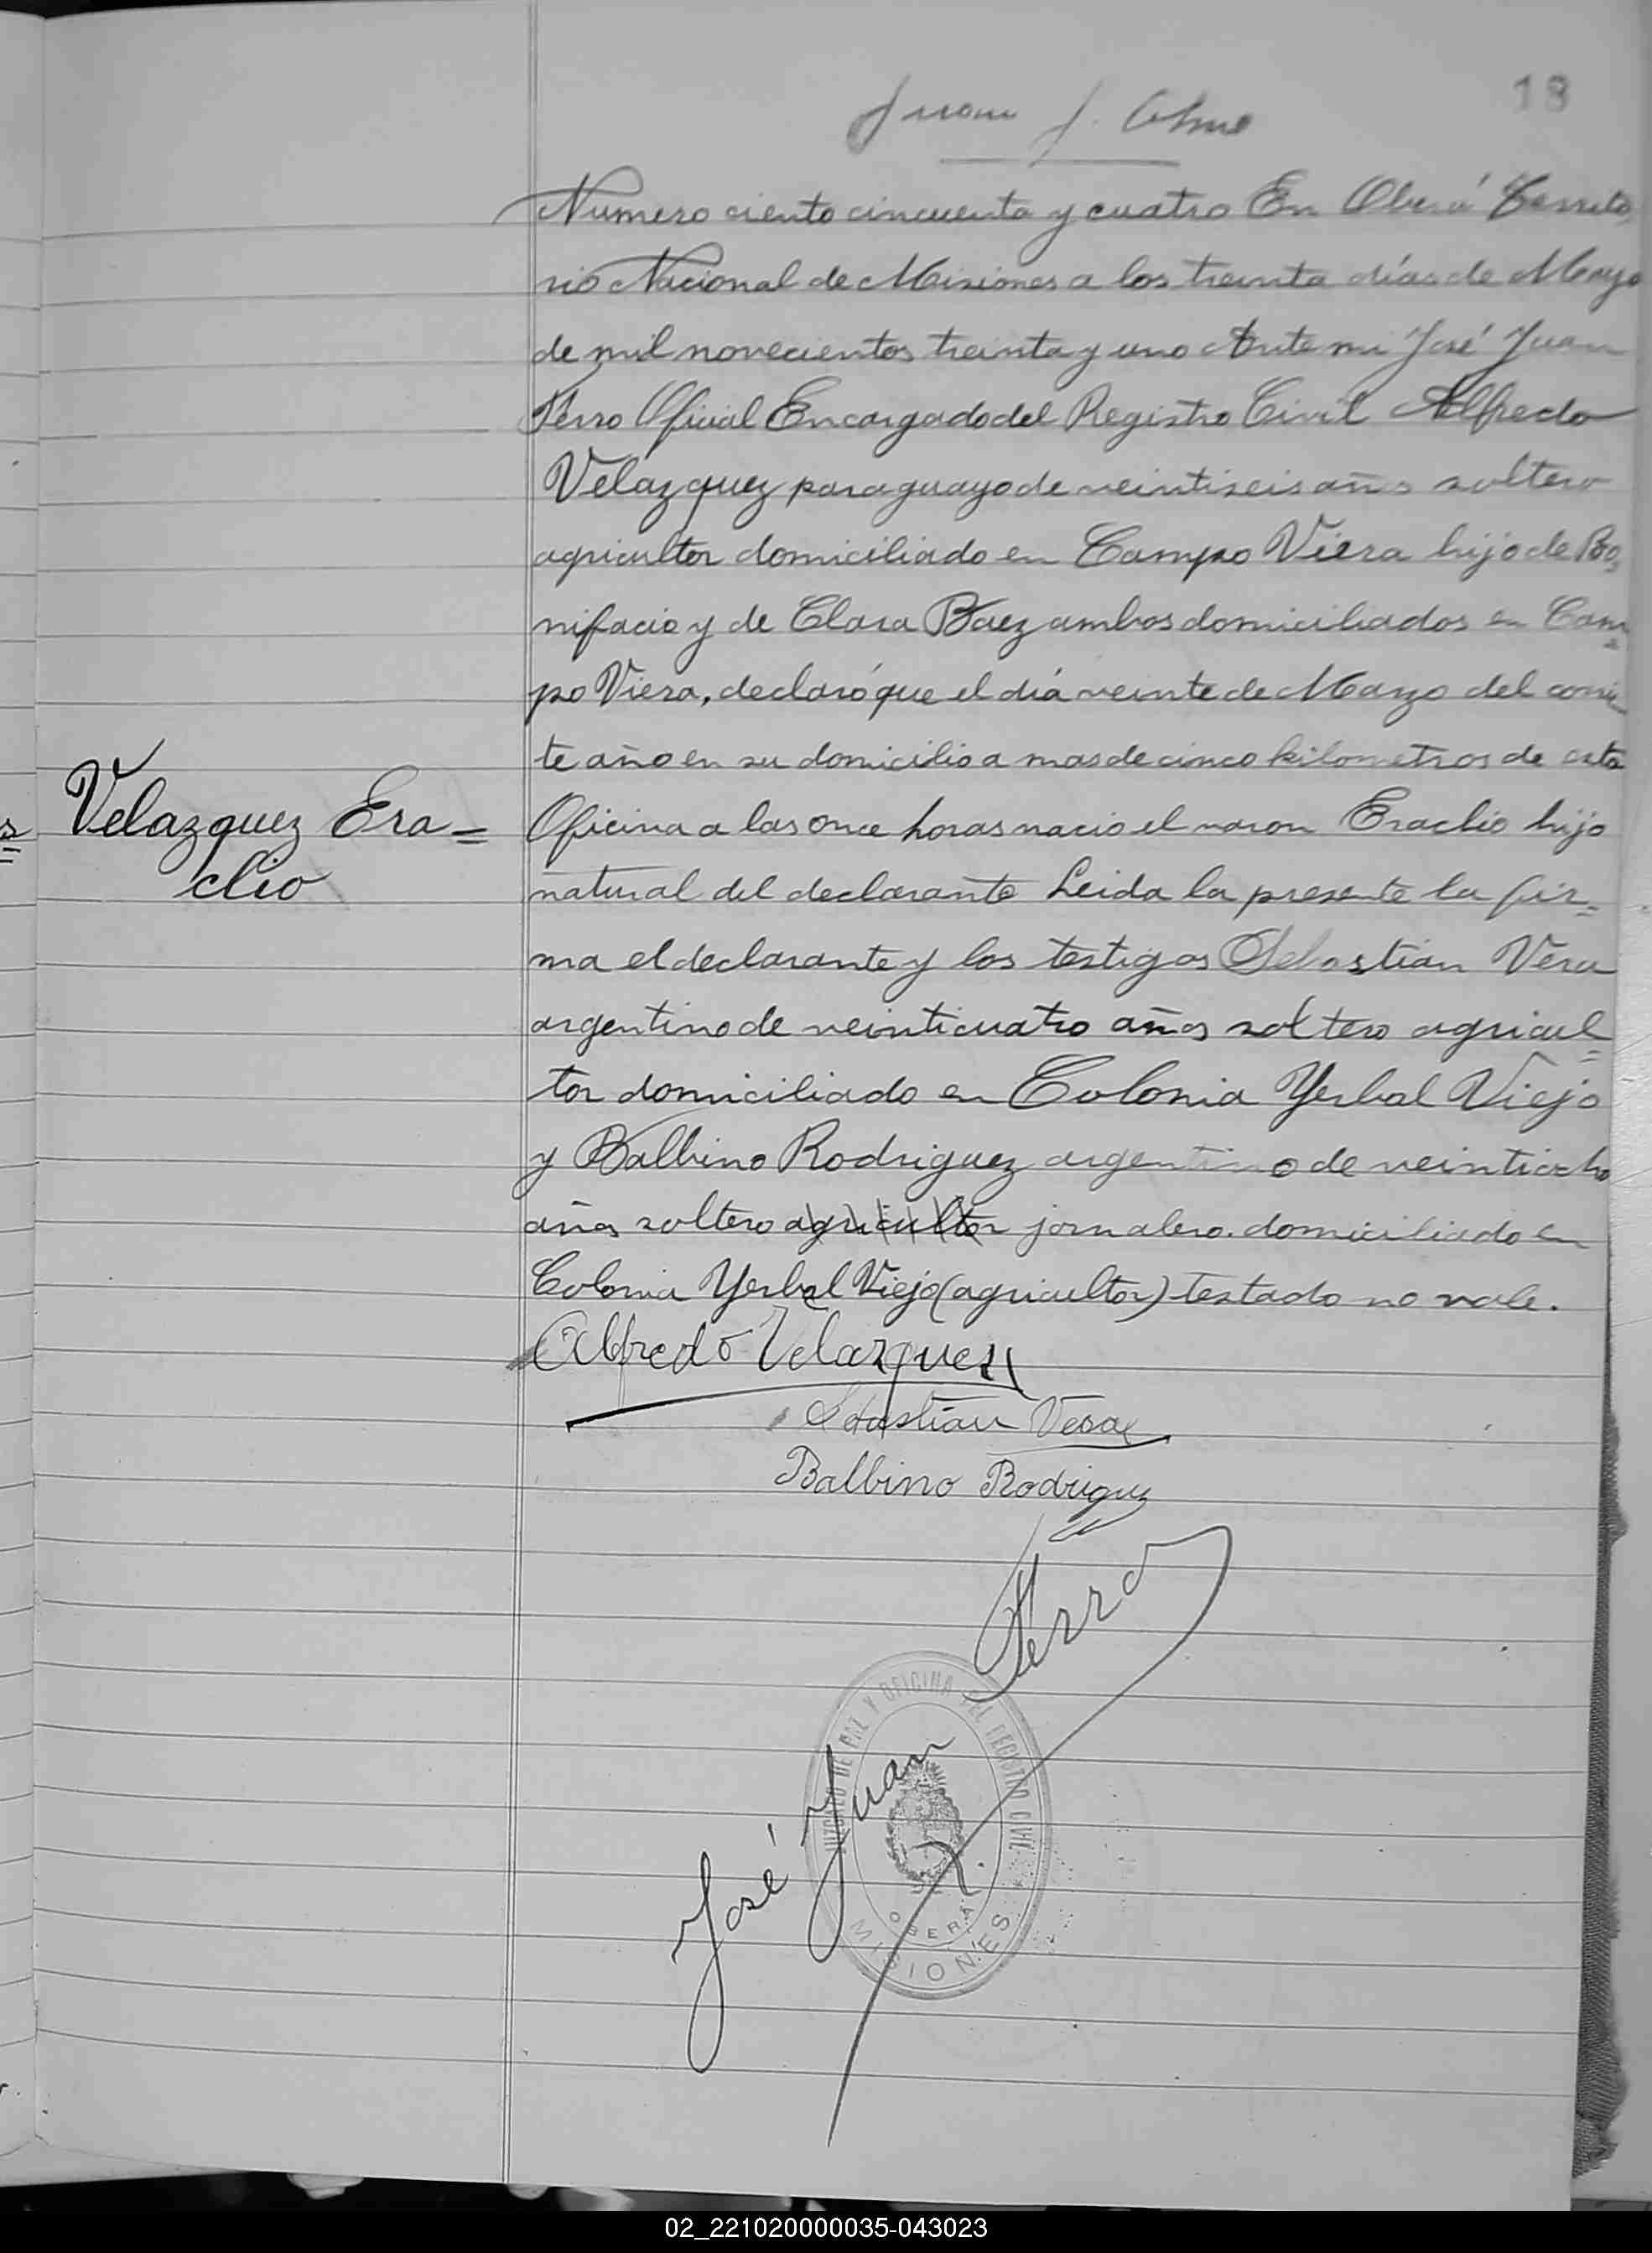 18
Juan J.
Numero ciento cincuenta y cuatro En Oberá Territo
rio Nacional de Misiones a los treinta días de Mayo
de mil novecientos treinta y uno Ante mi José Juan
Ferro Oficial Encargado del Registro Civil Alfredo
Velazquez paraguayo de veintiseis años soltero
agricultor domiciliado en Campo Viera hijo de Bo
nifacio y de Clara Baez ambos domiciliados en Cam
po Viera, declaró que el día veinte de Marzo del corrien
te año en su domicilio a mas de cinco kilometros de esta
Velazquez Era=
Oficina a las once horas nacio el varon Eraclio hijo
clio
natural del declarante Leida la presente la fir=
ma el declarante y los testigos Sebastián Vera
argentino de veinticuatro años soltero agricul=
tor domiciliado en Colonia Yerbal Viejo
y Balbino Rodriguez argentino de veintiocho
años soltero agricultor jornalero. domiciliado en
Colonia Yerbal Viejo (agricultor) testado no vale.
Alfredo Velazquez
Sebastian Vera
Balbino Rodriguez
José Juan Ferro
JUZGADO DE PAZ Y OFICINA DEL REGISTRO CIVIL
OBERÁ
MISIONES
02_221020000035-043023